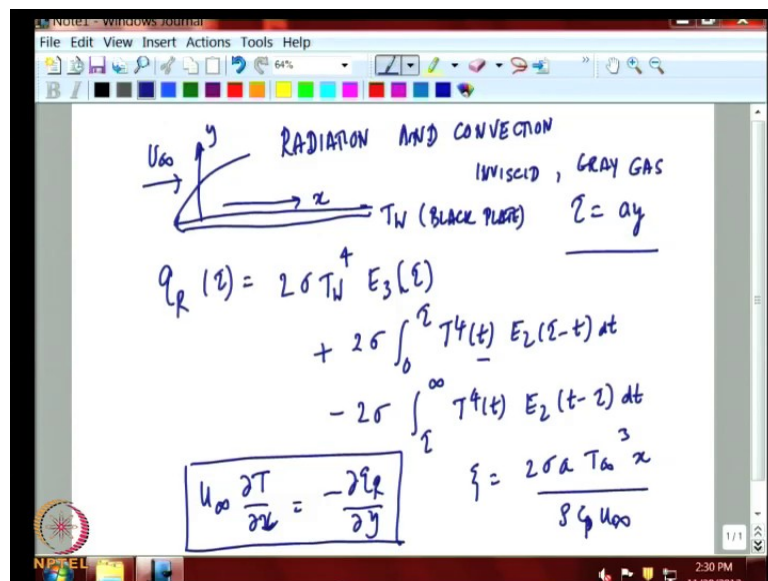 Note1 - Windows Journal
File Edit View Insert Actions Tools Help
64%
B I
U∞
y
RADIATION AND CONVECTION
INVISCID, GRAY GAS
x
T_W (BLACK PLATE)
τ = ay
q_R (τ) = 2σ T_W^4 E_3(τ)
+ 2σ ∫_0^τ T^4(t) E_2(τ-t) dt
- 2σ ∫_τ^∞ T^4(t) E_2(t-τ) dt
u∞ ∂T/∂x = -∂q_R/∂y
ξ = 2σa T∞^3 x / ρ c_p u∞
1/1
NPTEL
2:30 PM